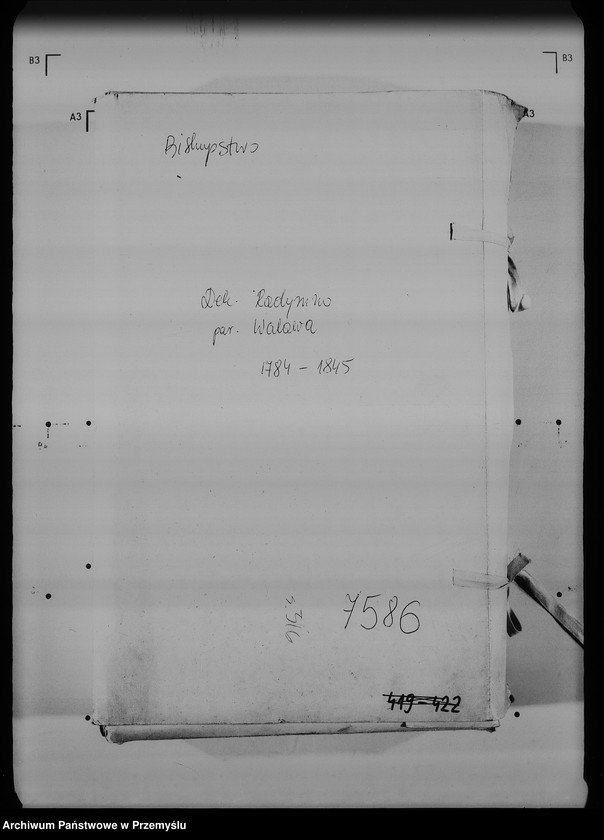 B3
B3
A3
A3
Biskupstwo
Dek. Radymno
par. Walawa
1784 - 1845
s. 316
7586
419-422
Archiwum Państwowe w Przemyślu